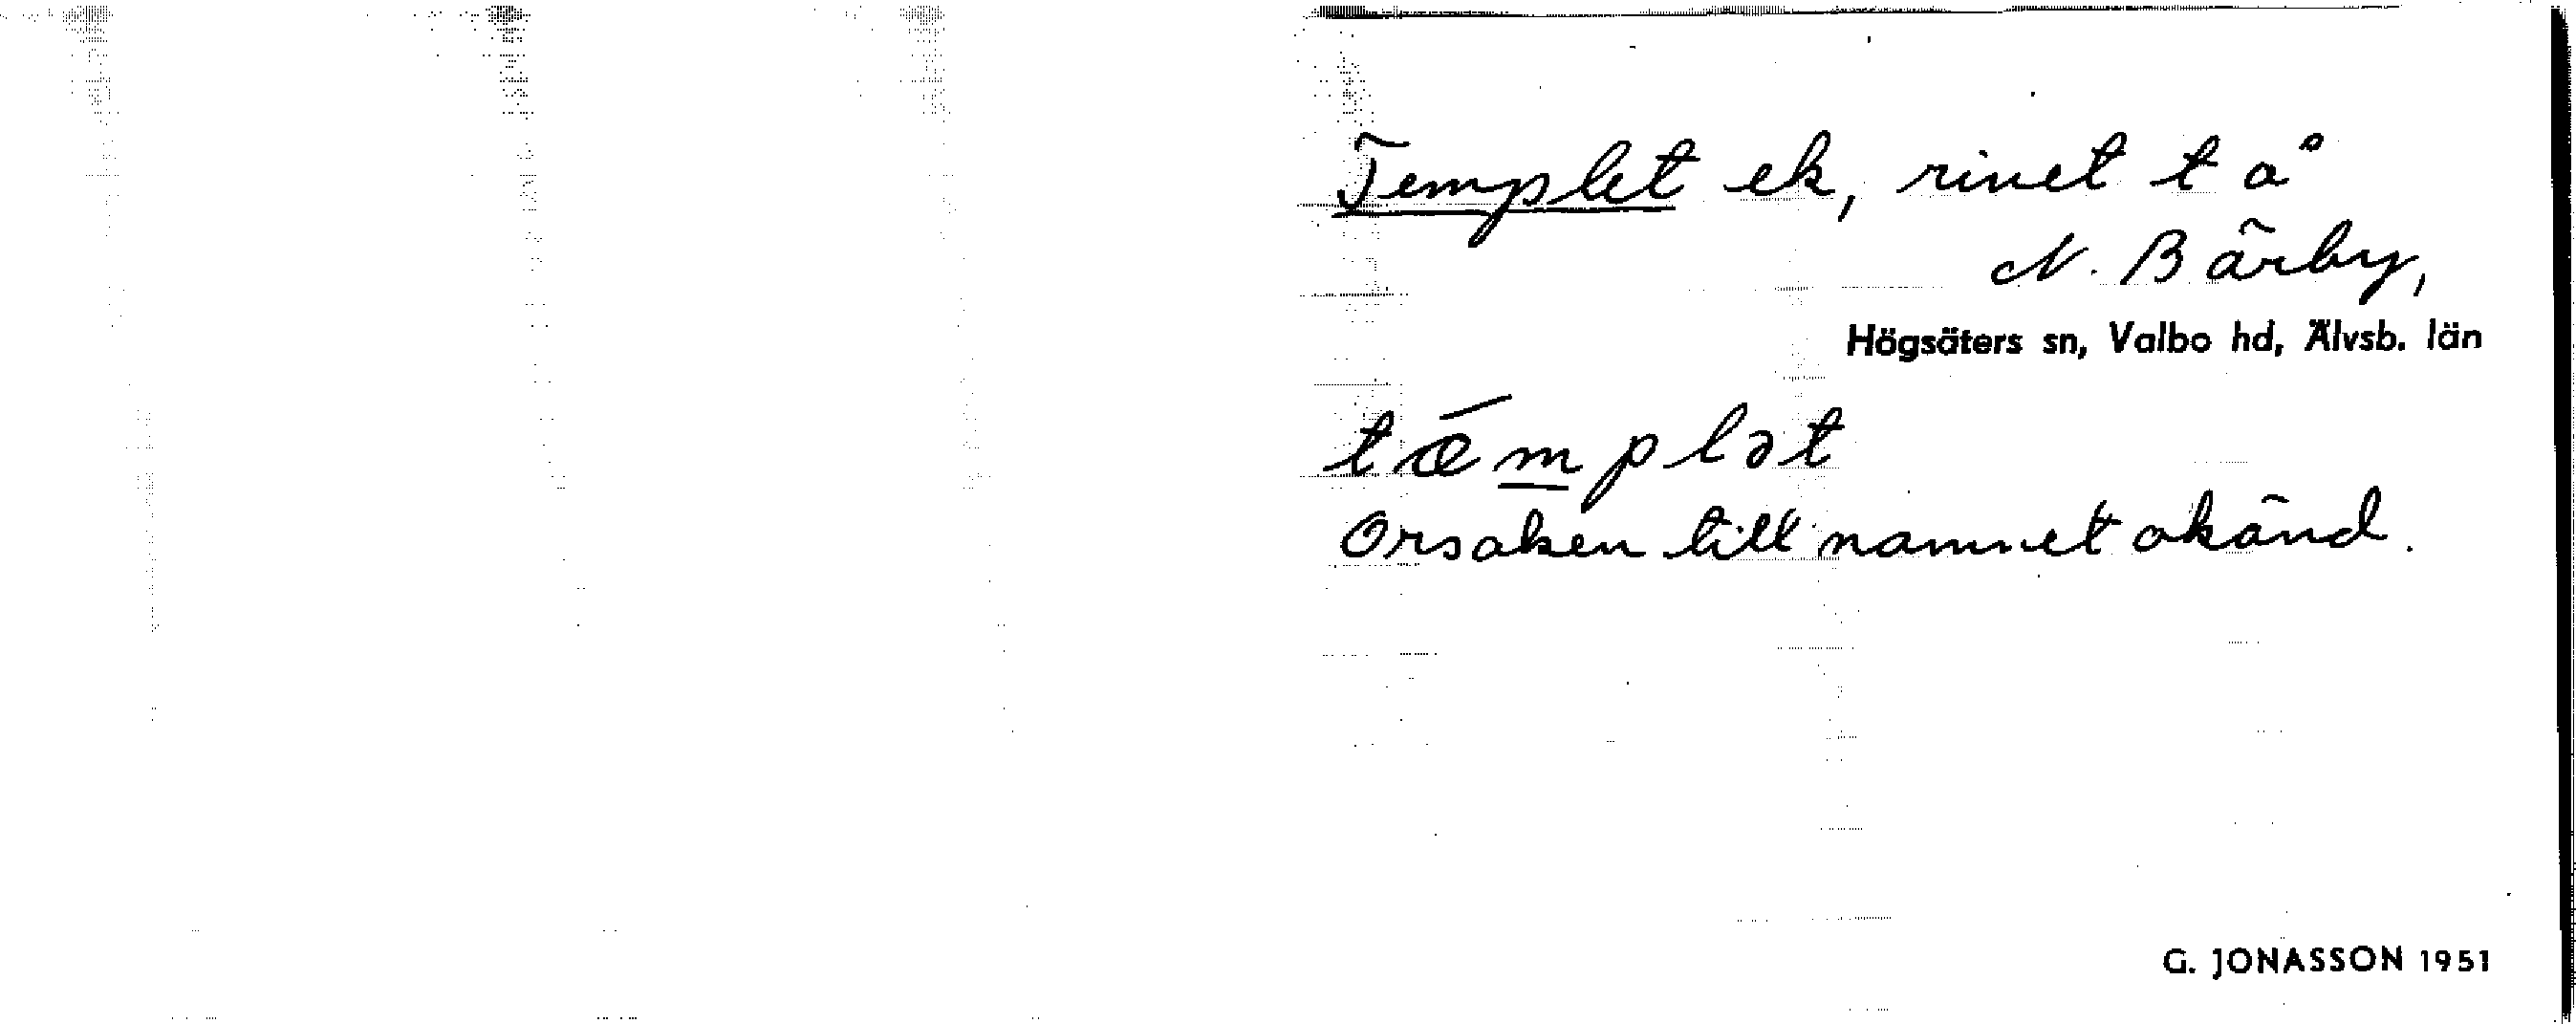 Templet ek, rivet t å
N. Bärby,
Högsäters sn, Valbo hd, Älvsb. län
tæ´mplət
Orsaken till namnet okänd.
G. JONASSON 1951